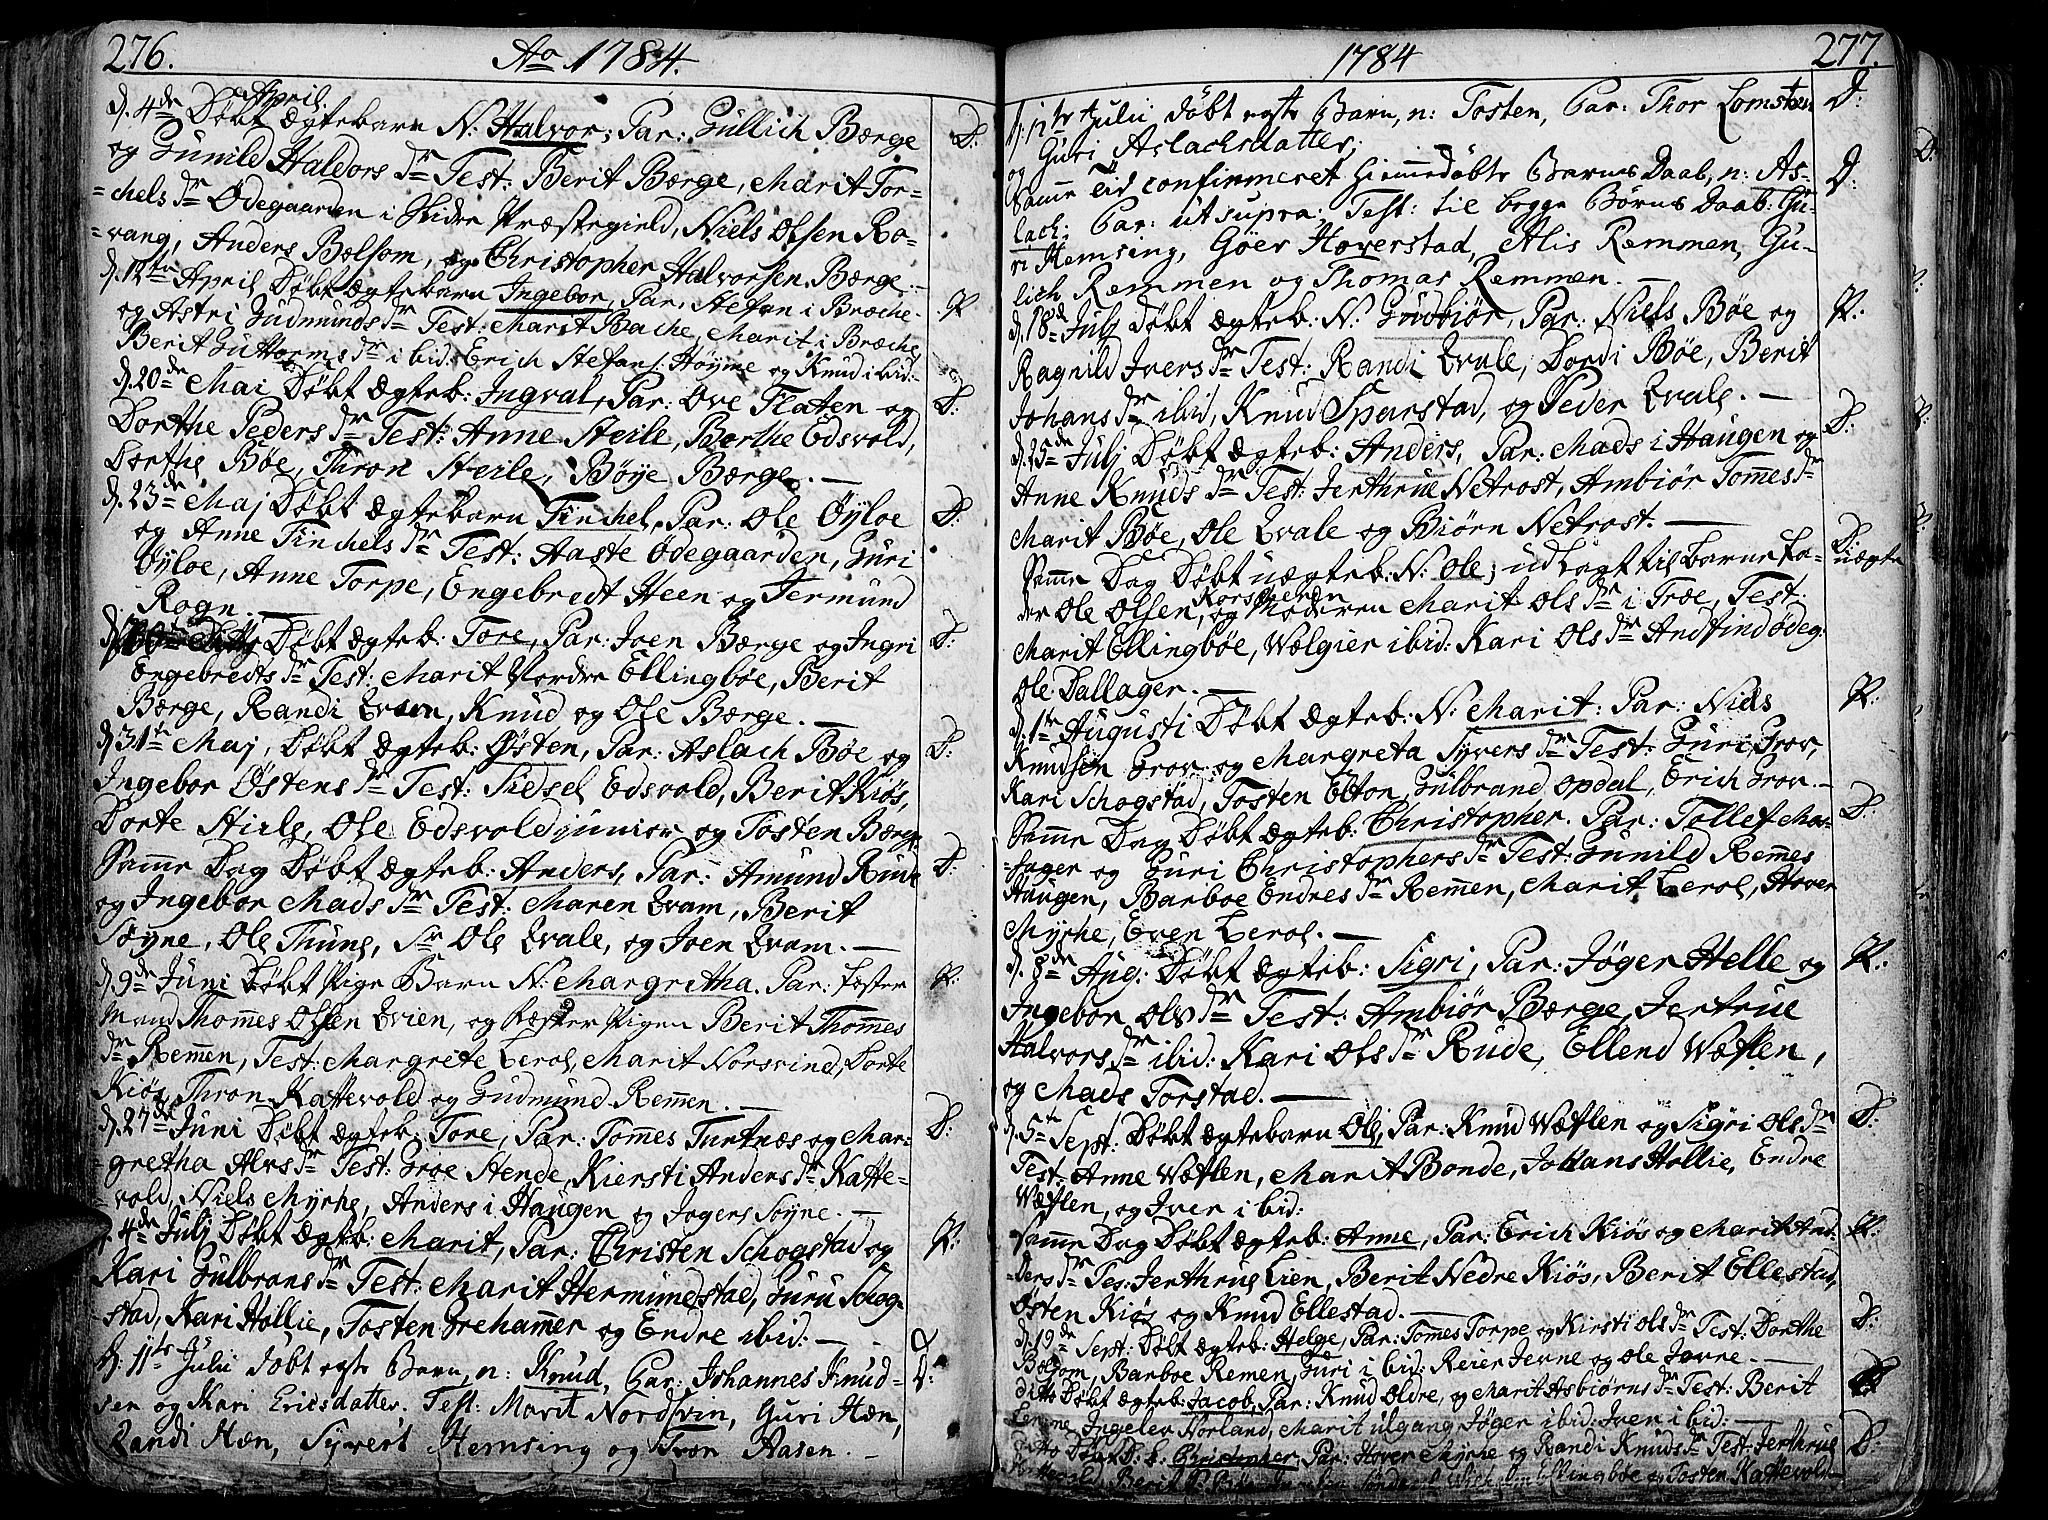 276. Ao 1784.
d. 4de April Døbt Ægtebarn N: Halvor; Par: Gullich Børge D:
og Gunild Haldors Dr Test: Berit Børge, Marit Tor-
=chels Dr Ødegaarden i Slidre Præstegield, Niels Olsen Ro-
=vang, Anders Bolsom, og Christopher Halvorsen Børge.
d. 12te April Døbt Ægtebarn Ingebor, Par. Stefan i Bræche P.
og Astri Gudmunds Dr Test: Marit Bache, Marit i Bræche
Berit Guttorms Dr ibid: Erich Stefans. Høyme og Knud ibid:
d. 20de Mai Døbt Ægteb: Ingval, Par: Ove Flaten og D:
Dorthe Peders Dr Test: Anne Steile, Berthe Edsvold,
Dorthe Bøe, Thron Steile, Bøye Børge. —
d. 23de Maj Døbt Ægtebarn Tinchel, Par: Ole Øyloe D:
og Anne Tinchels Dr Test: Aaste Ødegaarden, Guri
Øyloe, Anne Torpe, Engebredt Heen og Jermund
Rogn. —
Døbt Ægteb: Tore, Par: Joen Børge og Ingri D:
Engebredts Dr Test: Marit Nordre Ellingbøe, Berit
Børge, Randi Qvam, Knud og Ole Børge. —
d. 31te Maj, Døbt Ægteb: Østen, Par: Aslach Bøe og D:
Ingebor Østens Dr Test: Sidsel Edsvold, Berit Kiøs,
Dorte Steile, Ole Edsvold junior og Tosten Børge
Samme Dag Døbt Ægteb: Anders, Par: Amund Rude D:
og Ingebor Mads Dr Test: Maren Qvam, Berit
Søyne, Ole Thune, Sr Ole Qvale, og Joen Qvam. —
d. 9de Juni Døbt Pige Barn N: Margretha. Par: Fæster P:
Mand Thommes Olsen Qvien, og Fæster Pigen Berit Thommes
Dr Remmen, Test: Margrete Lerol, Marit Norsvind, Dorte
Kiøs, Thron Kattevold og Gudmund Remmen. —
d. 27de Juni Døbt Ægteb: Tore, Par: Tommes Turtnæs og Mar= D:
gretha Alvs Dr Test: Groe Stende, Kiersti Anders Dr Katte=
vold, Niels Myrhe, Anders i Haugen og Jogers Søyne. —
d. 4de Julj Døbt Ægteb: Marit, Par: Christen Schogstad og P:
Kari Gulbrans Dr Test: Marit Hermundstad, Guru Schog-
stad, Kari Hollie, Tosten Grehammer og Endre ibid: —
d: 11te Julii døbt egte Barn, n: Knud, Par: Johannes Knud- D:
sen og Kari Ericsdatter. Test: Marit Nordsvin, Guri Hæn,
Randi Hæn, Syvert Hemsing og Tron Aasen. —
1784 277.
d: 12te Julii døbt egte Barn, n: Tosten, Par: Thor Lomsteen D:
og Guri Aslachsdatter;
Samme tid confirmeret hiemmedøbte Barns Daab, n: As- D:
lach: Par: ut supra; Test: til begge Børns Daab: Gu-
ri Hemsing, Goer Hoverstad, Alis Remmen, Gu-
lich Remmen og Thomas Remmen. —
d. 18de Julj Døbt Ægteb: N: Gudbiør, Par: Niels Bøe og P:
Ragnild Ivers Dr Test: Randi Qvale, Dordi Bøe, Berit
Johans Dr ibid, Knud Sparstad, og Peder Qvale. —
d. 25de Julj Døbt Ægteb: Anders, Par: Mads i Haugen og D:
Anne Knuds Dr Test: Jerthrue Netrost, Ambiør Tommes Dr
Marit Bøe, Ole Qvale og Biørn Netrost. —
Samme Dag Døbt uægteb: N: Ole; udlagt til Barne Fa- D: uægte
der Ole Olsen Korsveren, og Moderen Marit Ols Dr i Troe, Test:
Marit Ellingbøe, Wølgier ibid: Kari Ols Dr Andfind Ødeg:
Ole Dallager. —
d. 1te Augusti Døbt Ægteb: N: Marit: Par: Niels P:
Knudsen Grov og Margreta Syvers Dr Test: Guri Grov,
Kari Schogstad, Tosten Elton, Gulbrand Opdal, Erich Grov. —
Samme Dag Døbt Ægteb: Christopher. Par: Tollef Mos- D:
=hager og Guri Christophers Dr Test: Gunild Remmes
Haugen, Barboe Endres Dr Remmen, Marit Lerol, Hover
Myrhe, Even Lerol. —
d. 8de Aug: Døbt Ægteb: Sigri, Par: Jøger Helle og P:
Ingebor Ols Dr Test: Ambiør Børge, Jertrue
Halvors Dr ibid: Kari Ols Dr Rude, Ellend Wæflen,
og Mads Torstad. —
d. 5te Sept: Døbt Ægtebarn Ole, Par: Knud Wæflen og Sigri Ols Dr D:
Test: Anne Wæflen, Marit Bonde, Johans Hollie, Endre
Wæflen, og Iver ibid:
Samme Dag Døbt Ægteb: Anne, Par: Erich Kiøs og Marit An- P:
=ders Dr Tes: Jerthrue Lien, Berit Nedre Kiøs, Berit Ellestad,
Østen Kiøs og Knud Ellestad. —
d. 19de Sept: Døbt Ægteb: Helge, Par: Tommes Torpe og Kirsti Ols Dr Test: Dorthe D:
Bolsom, Barboe Remen, Guri ibid: Reier Jevne og Ole Jevne. —
ditto Døbt Ægteb: Jacob, Par: Knud Oldre, og Marit Asbiørns Dr Test: Berit D:
Lemme, Ingelev Norland, Marit Ulgang, Jøger ibid: Iver ibid: —
ditto Døbt Christopher, Par: Hover Myrhe og Randi Knuds Dr Test: Jerthrue D:
Berit Ellingbøe og Tosten Kattevold